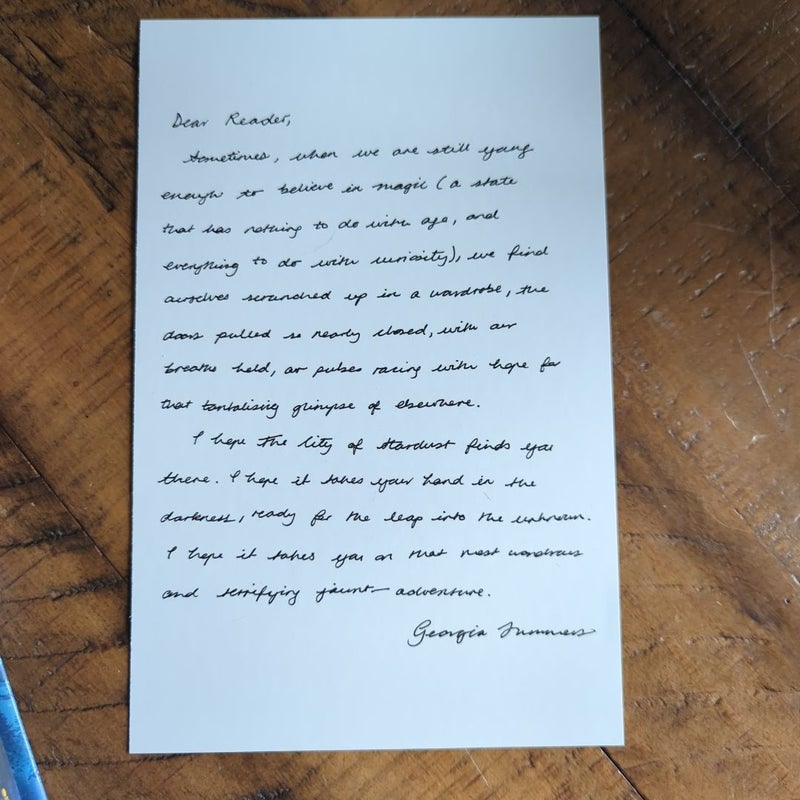 Dear Reader,
Sometimes, when we are still young
enough to believe in magic (a state
that has nothing to do with age, and
everything to do with curiosity), we find
ourselves scrunched up in a wardrobe, the
doors pulled so nearly closed, with our
breaths held, our pulses racing with hope for
that tantalising glimpse of elsewhere.
I hope The City of Stardust finds you
there. I hope it takes your hand in the
darkness, ready for the leap into the unknown.
I hope it takes you on that most wondrous
and terrifying jaunt – adventure.
Georgia Summers